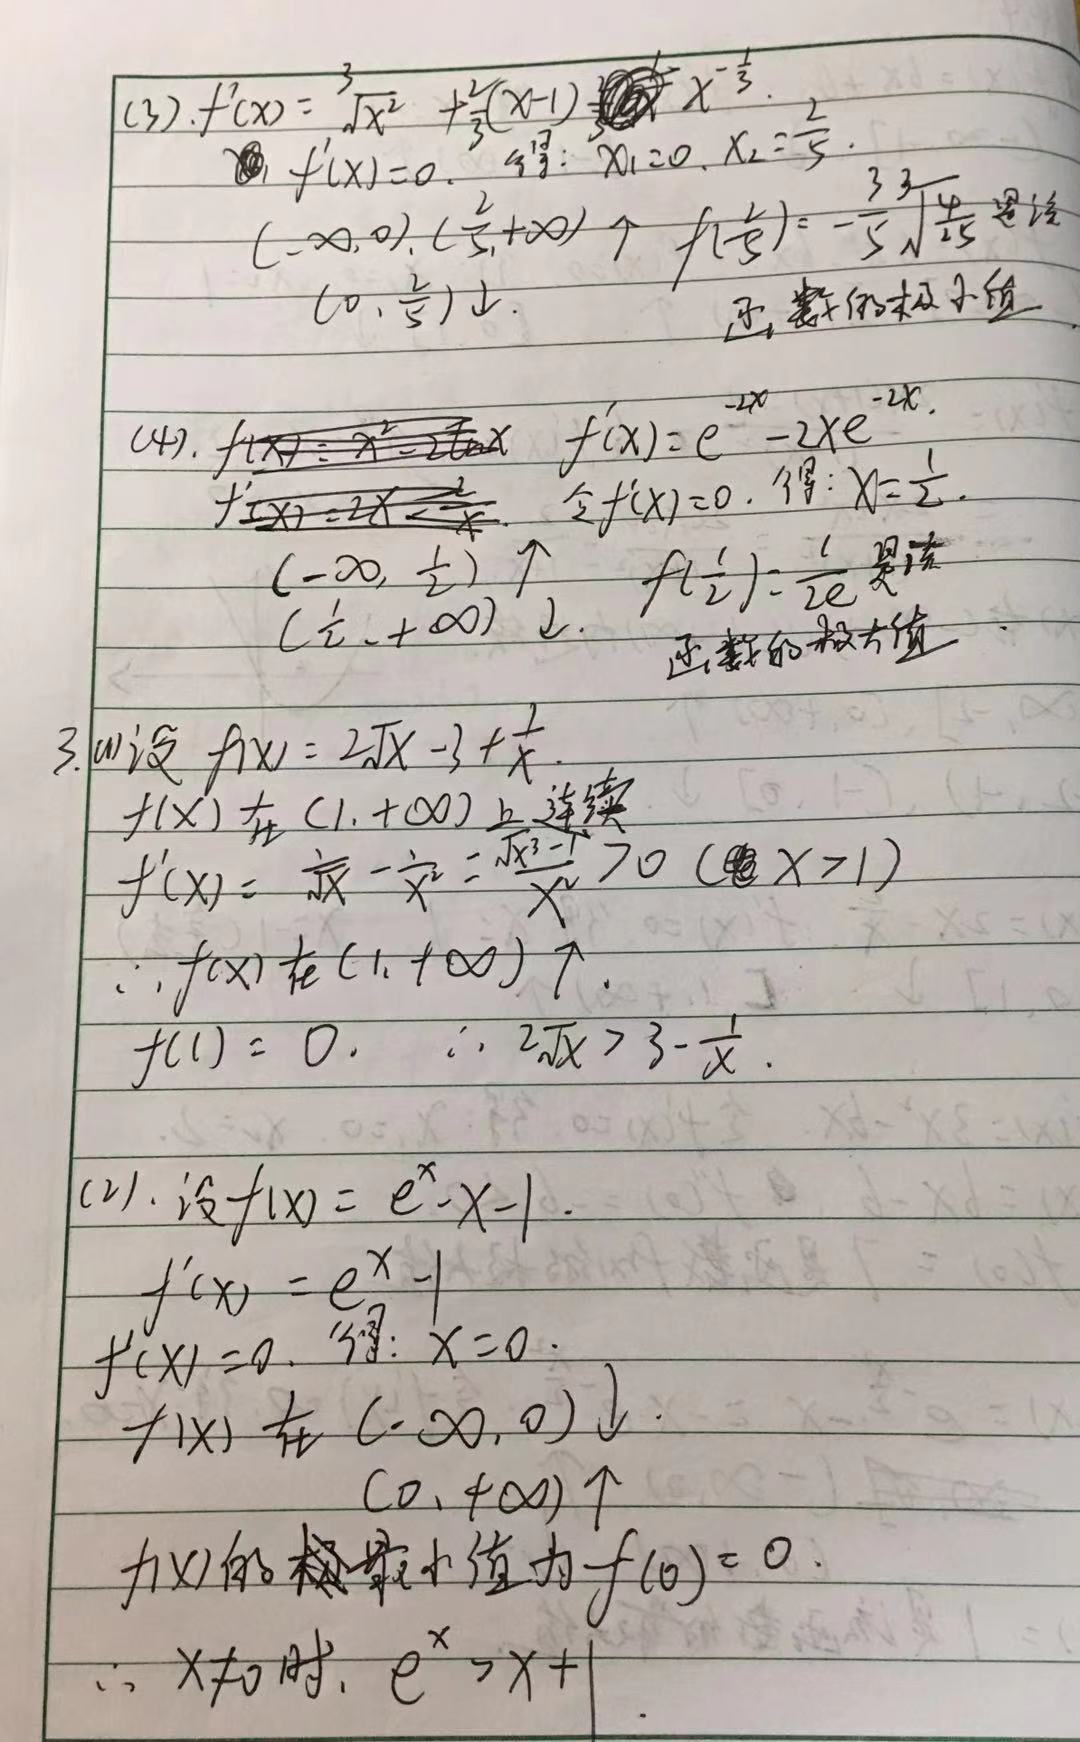 (3). f'(x) = ∛x² + 2/3 (x-1) x^(-1/3).
f'(x)=0. 得: x₁=0. x₂=2/5.
(-∞,0). (2/5,+∞) ↑ f(2/5) = -3/5 ∛(4/25) 是该
(0, 2/5) ↓. 函数的极小值
(4). f(x) = x² - 2lnx f'(x) = e^(-2x) - 2xe^(-2x).
f'(x) = 2x - 2/x. 令f'(x)=0. 得: x=1/2.
(-∞, 1/2) ↑ f(1/2) = 1/2e 是该
(1/2, +∞) ↓. 函数的极大值
3. (1) 设 f(x) = 2√x - 3 + 1/x.
f(x) 在 (1, +∞) 上连续
f'(x) = 1/√x - 1/x² = (√x³-1)/x² > 0 (x > 1)
∴ f(x) 在 (1, +∞) ↑.
f(1) = 0. ∴ 2√x > 3 - 1/x.
(2). 设 f(x) = e^x - x - 1.
f'(x) = e^x - 1
f'(x) = 0. 得: x = 0.
f(x) 在 (-∞, 0) ↓.
(0, +∞) ↑
f(x) 的最小值为 f(0) = 0.
∴ x≠0 时, e^x > x + 1.